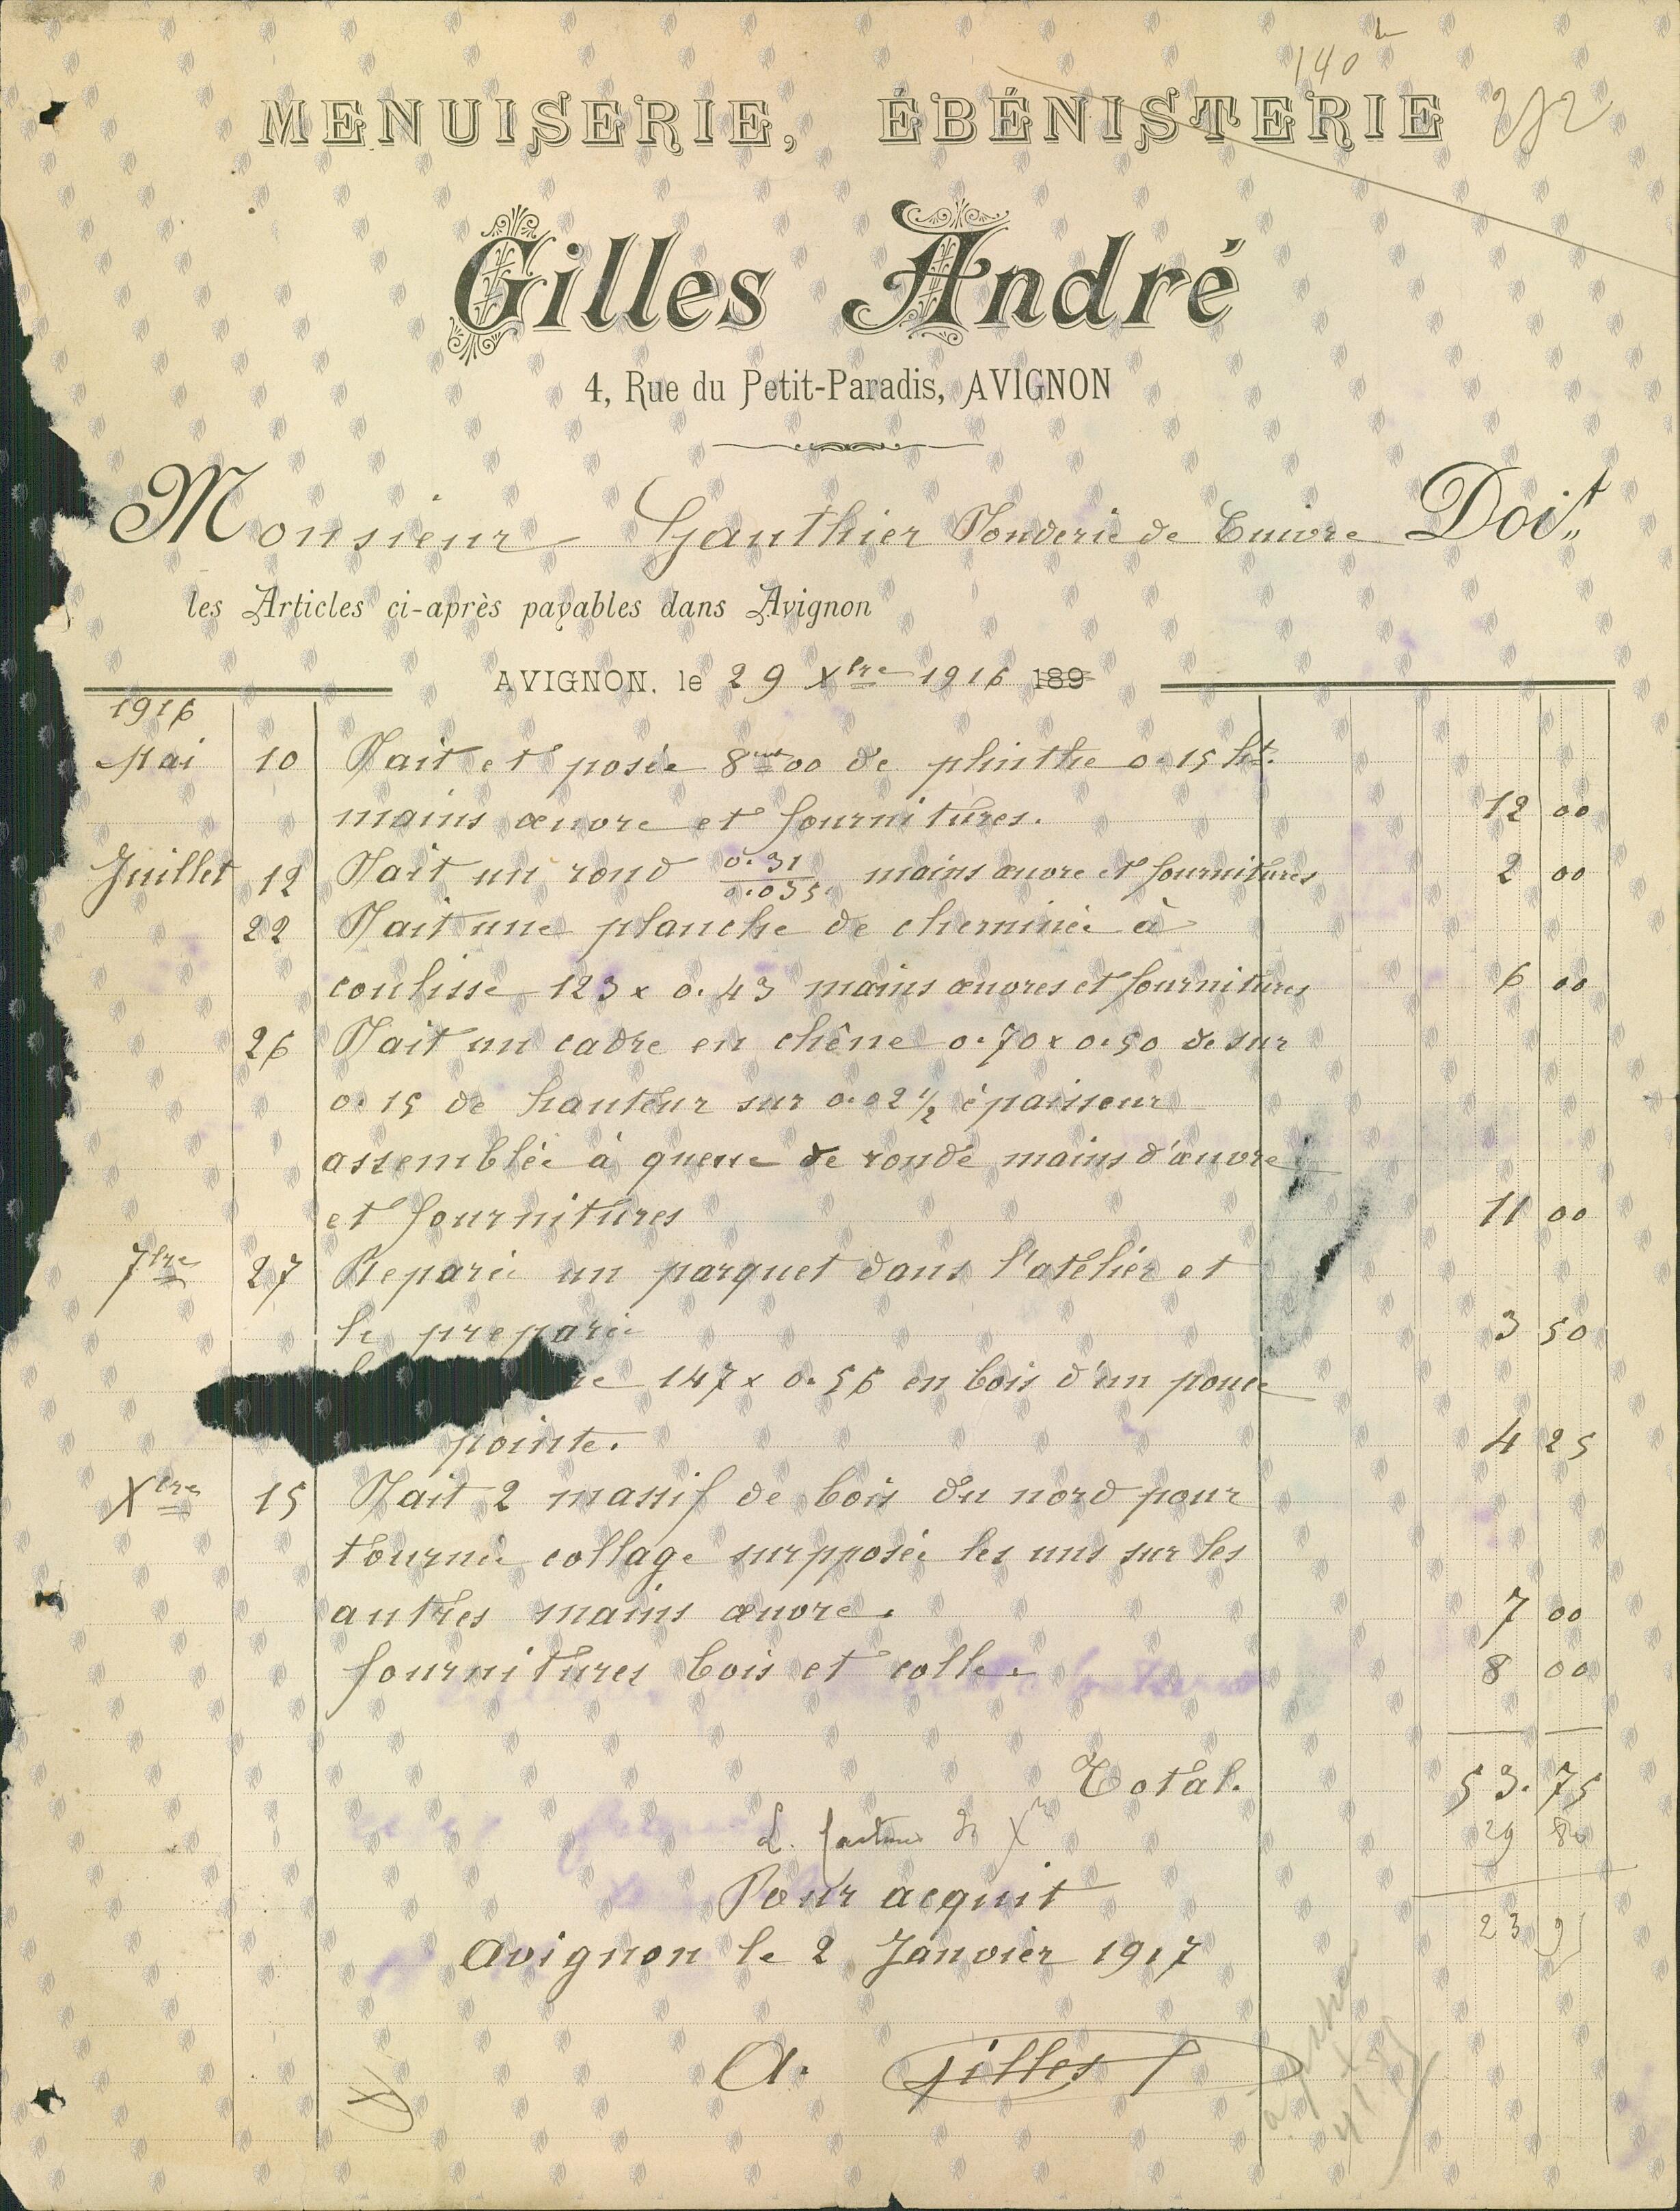 140
MENUISERIE, ÉBÉNISTERIE
Gilles André
4, Rue du Petit-Paradis, AVIGNON
Monsieur Gauthier Fonderie de Cuivre Doit
les Articles ci-après payables dans Avignon
AVIGNON, le 29 Xbre 1916 189
1916
Mai 10 Fait et posée 8mt00 de plinthe 0.15 ht.
mains œuvre et fournitures. 12 00
Juillet 12 Fait un rond 0.31/0.035 mains œuvre et fournitures 2 00
22 Fait une planche de cheminée à
coulisse 123 x 0.43 mains œuvres et fournitures 6 00
26 Fait un cadre en chêne 0.70 x 0.50 de sur
0.15 de hauteur sur 0.02 1/2 épaisseur
assemblée à queue de ronde mains d'œuvre
et fournitures 11 00
7bre 27 Reparée un parquet dans l'atelier et
le preparée 3 50
147 x 0.56 en bois d'un pouce
pointe. 4 25
Xbre 15 Fait 2 massif de bois du nord pour
tournée collage surpposée les uns sur les
autres mains œuvre. 7 00
fournitures bois et colle. 8 00
Total. 53.75
29 80
Pour acquit
23 95
Avignon le 2 Janvier 1917
A. Gilles